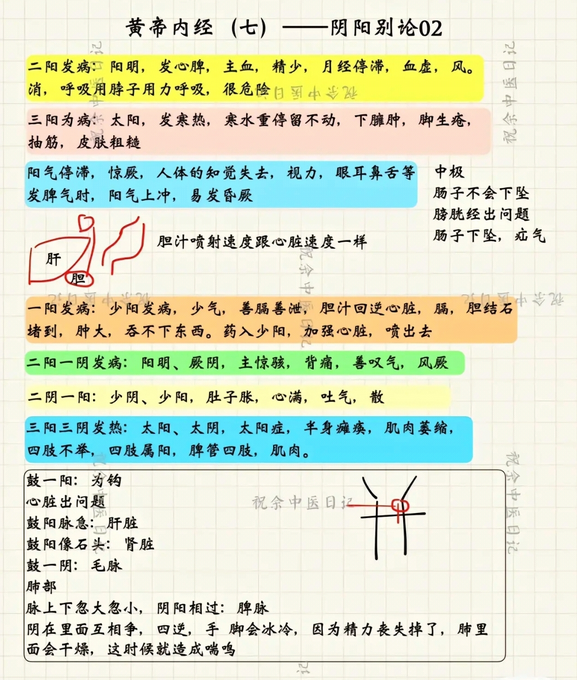 黄帝内经（七）——阴阳别论02
二阳发病：阳明，发心脾，主血，精少，月经停滞，血虚，风。
消，呼吸用脖子用力呼吸，很危险
三阳为病：太阳，发寒热，寒水重停留不动，下臃肿，脚生疮，
抽筋，皮肤粗糙
阳气停滞，惊厥，人体的知觉失去，视力，眼耳鼻舌等
发脾气时，阳气上冲，易发昏厥
中极
肠子不会下坠
膀胱经出问题
肠子下坠，疝气
肝
胆
胆汁喷射速度跟心脏速度一样
一阳发病：少阳发病，少气，善膈善泄，胆汁回逆心脏，膈，胆结石
堵到，肿大，吞不下东西。药入少阳，加强心脏，喷出去
二阳一阴发病：阳明、厥阴，主惊骇，背痛，善叹气，风厥
二阴一阳：少阴、少阳，肚子胀，心满，吐气，散
三阳三阴发热：太阳、太阴，太阳症，半身瘫痪，肌肉萎缩，
四肢不举，四肢属阳，脾管四肢，肌肉。
鼓一阳：为钩
心脏出问题
鼓阳脉急：肝脏
鼓阳像石头：肾脏
鼓一阴：毛脉
肺部
脉上下忽大忽小，阴阳相过：脾脉
阴在里面互相争，四逆，手 脚会冰冷，因为精力丧失掉了，肺里
面会干燥，这时候就造成喘鸣
祝余中医日记
祝余中医日记
祝余中医日记
祝余中医日记
祝余中医日记